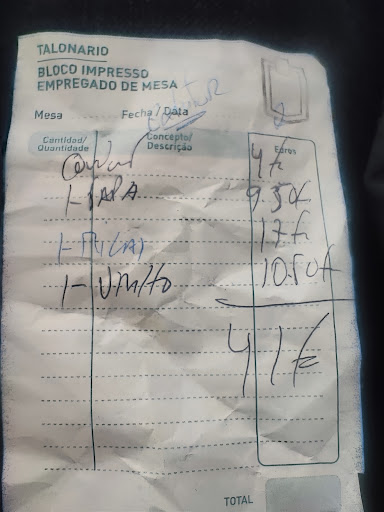 TALONARIO
BLOCO IMPRESSO
EMPREGADO DE MESA
Mesa Fecha / Data
Cantidad/ Quantidade Concepto/ Descrição Euros
4 €
1- SAPA 9.50 €
17 €
10.50 €
41 €
TOTAL